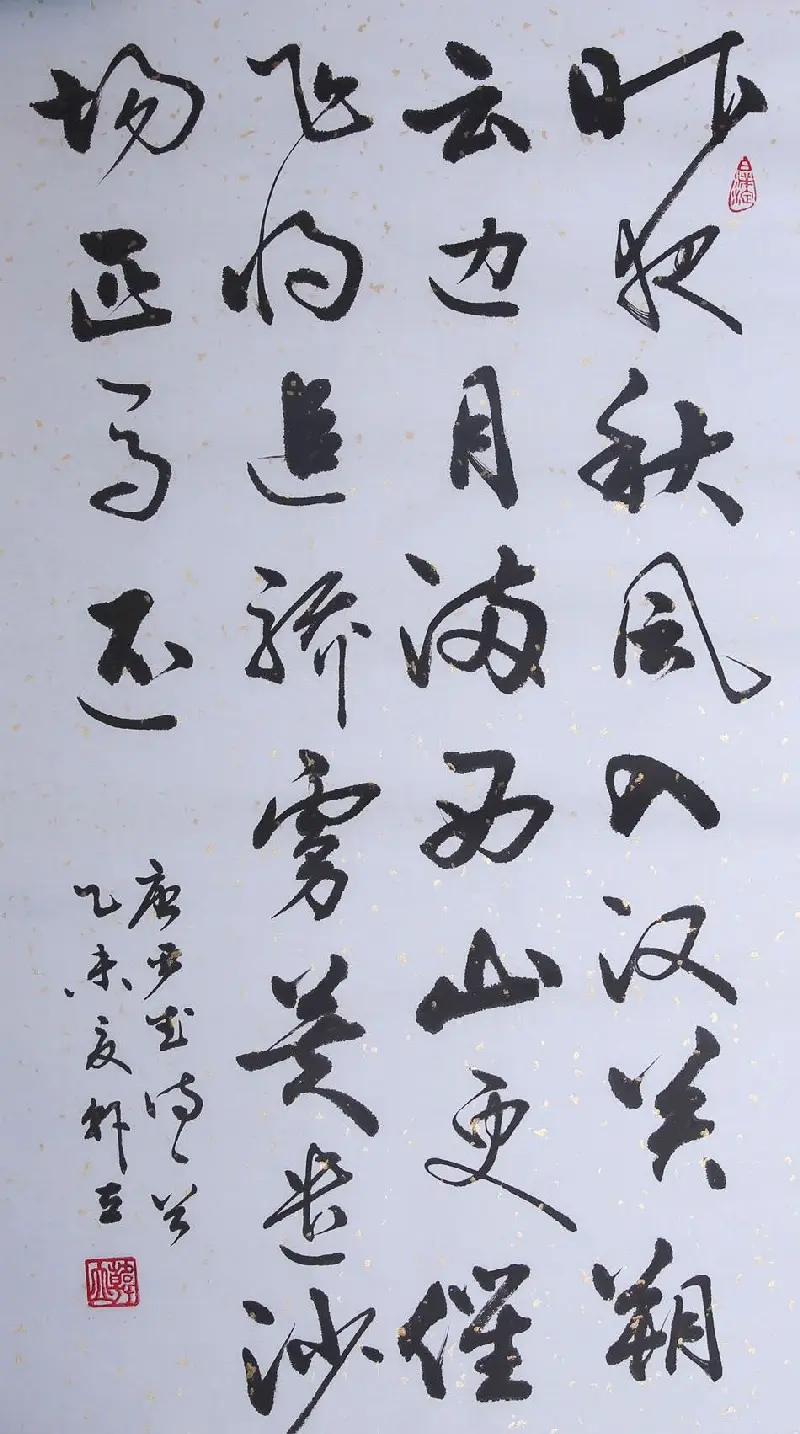 昨夜秋风入汉关朔
云边月满西山更催
飞将追骄虏莫遣沙
场匹马还
唐严武诗一首
乙未夏